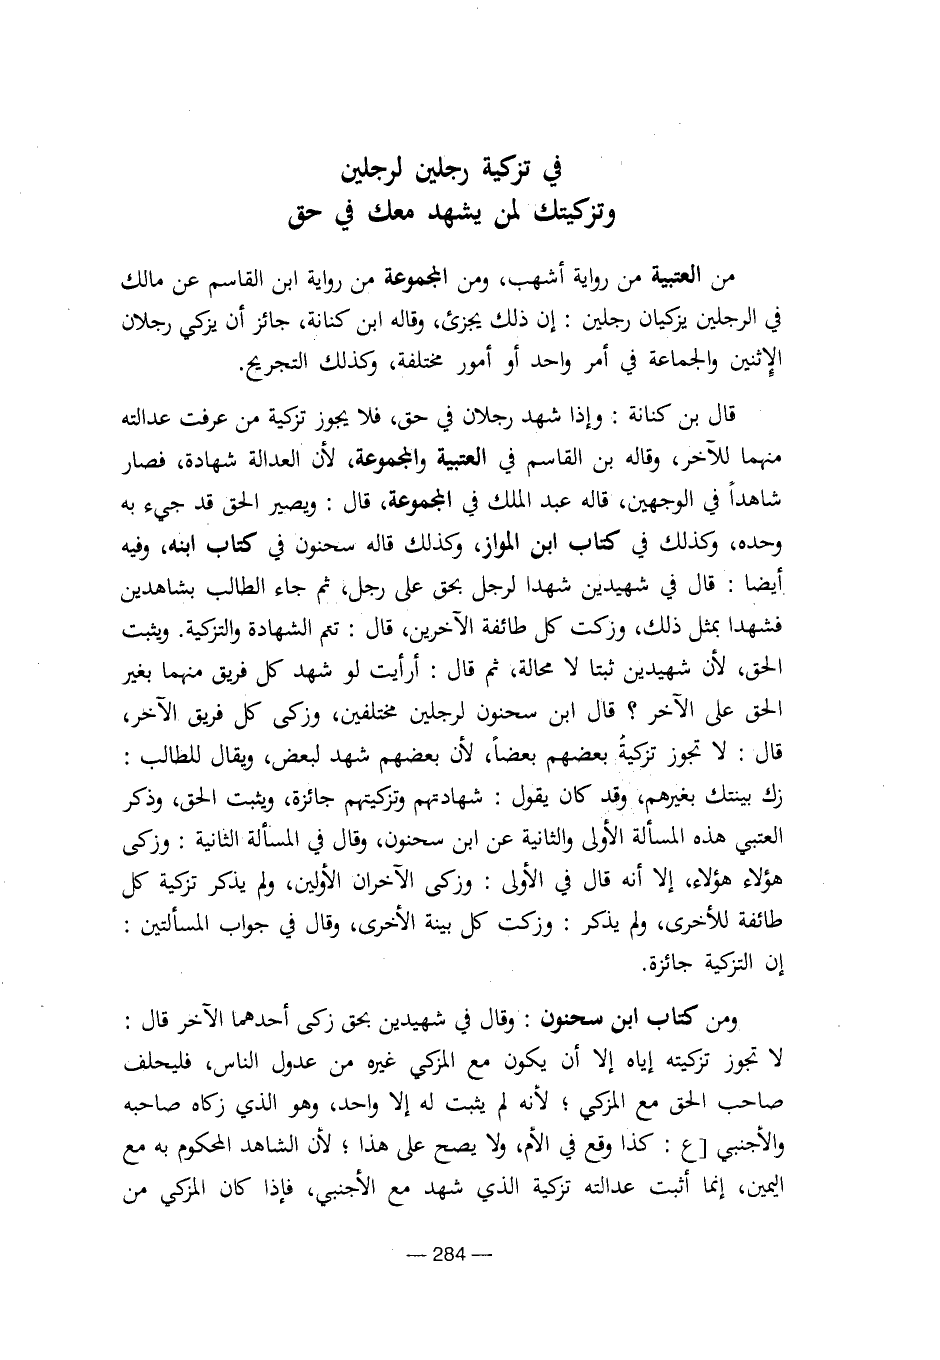 في تزكية رجلين لرجلين
وتزكيتك لمن يشهد معك في حق
من العتبية من رواية أشهب، ومن المجموعة من رواية ابن القاسم عن مالك
في الرجلين يزكيان رجلين : إن ذلك يجزئ، وقاله ابن كنانة، جائز أن يزكي رجلان
الإثنين والجماعة في أمر واحد أو أمور مختلفة، وكذلك التجريح.
قال بن كنانة : وإذا شهد رجلان في حق، فلا يجوز تزكية من عرفت عدالته
منهما للآخر، وقاله بن القاسم في العتبية والمجموعة، لأن العدالة شهادة، فصار
شاهداً في الوجهين، قاله عبد الملك في المجموعة، قال : ويصير الحق قد جيء به
وحده، وكذلك في كتاب ابن المواز، وكذلك قاله سحنون في كتاب ابنه، وفيه
أيضا : قال في شهيدين شهدا لرجل بحق على رجل، ثم جاء الطالب بشاهدين
فشهدا بمثل ذلك، وزكت كل طائفة الآخرين، قال : تتم الشهادة والتزكية. ويثبت
الحق، لأن شهيدين ثبتا لا محالة، ثم قال : أرأيت لو شهد كل فريق منهما بغير
الحق على الآخر ؟ قال ابن سحنون لرجلين مختلفين، وزكى كل فريق الآخر،
قال : لا تجوز تزكيةُ بعضهم بعضاً، لأن بعضهم شهد لبعض، ويقال للطالب :
زك بينتك بغيرهم، وقد كان يقول : شهادتهم وتزكيتهم جائزة، ويثبت الحق، وذكر
العتبي هذه المسألة الأولى والثانية عن ابن سحنون، وقال في المسألة الثانية : وزكى
هؤلاء هؤلاء، إلا أنه قال في الأولى : وزكى الآخران الأولين، ولم يذكر تزكية كل
طائفة للأخرى، ولم يذكر : وزكت كل بينة الأخرى، وقال في جواب المسألتين :
إن التزكية جائزة.
ومن كتاب ابن سحنون : وقال في شهيدين بحق زكى أحدهما الآخر قال :
لا تجوز تزكيته إياه إلا أن يكون مع المزكي غيره من عدول الناس، فليحلف
صاحب الحق مع المزكي ؛ لأنه لم يثبت له إلا واحد، وهو الذي زكاه صاحبه
والأجنبي [ع : كذا وقع في الأم، ولا يصح على هذا ؛ لأن الشاهد المحكوم به مع
اليمين، إنما أثبت عدالته تزكية الذي شهد مع الأجنبي، فإذا كان المزكي من
— 284 —